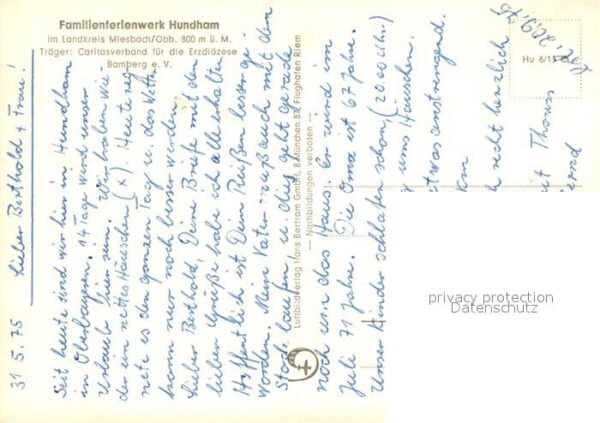 Familienferienwerk Hundham
im Landkreis Miesbach/Obb. 800 m ü. M.
Träger: Caritasverband für die Erzdiözese
Bamberg e. V.
31.5.75
Lieber Berthold + Frau!
Seit heute sind wir hier in Hundham
in Oberbayern. 14 Tage wird unser
Urlaub hier sein. Wir haben wie-
der ein nettes Häuschen (x). Heute reg-
nete es den ganzen Tag u. das Wetter
kann nur noch besser werden.
Lieber Berthold, Deine Briefe mit den
lieben Grüße habe ich alle erhalten.
Hoffentlich ist Dein Reißen besser ge-
worden. Mein Vater muß auch mit dem
Stock laufen, u. dies geht gerade
noch um das Haus. Er wird im
Juli 71 Jahre. Die Oma ist 67 Jahre.
Unser Kinder schlafen schon (20.00 Uhr)
ums Häuschen.
twas anstrengend.
h recht herzlich
it Thomas
Luftbildverlag Hans Bertram GmbH, 8 München 87, Flughafen Riem
— Nachbildungen verboten —
Hu 6/13
privacy protection
Datenschutz